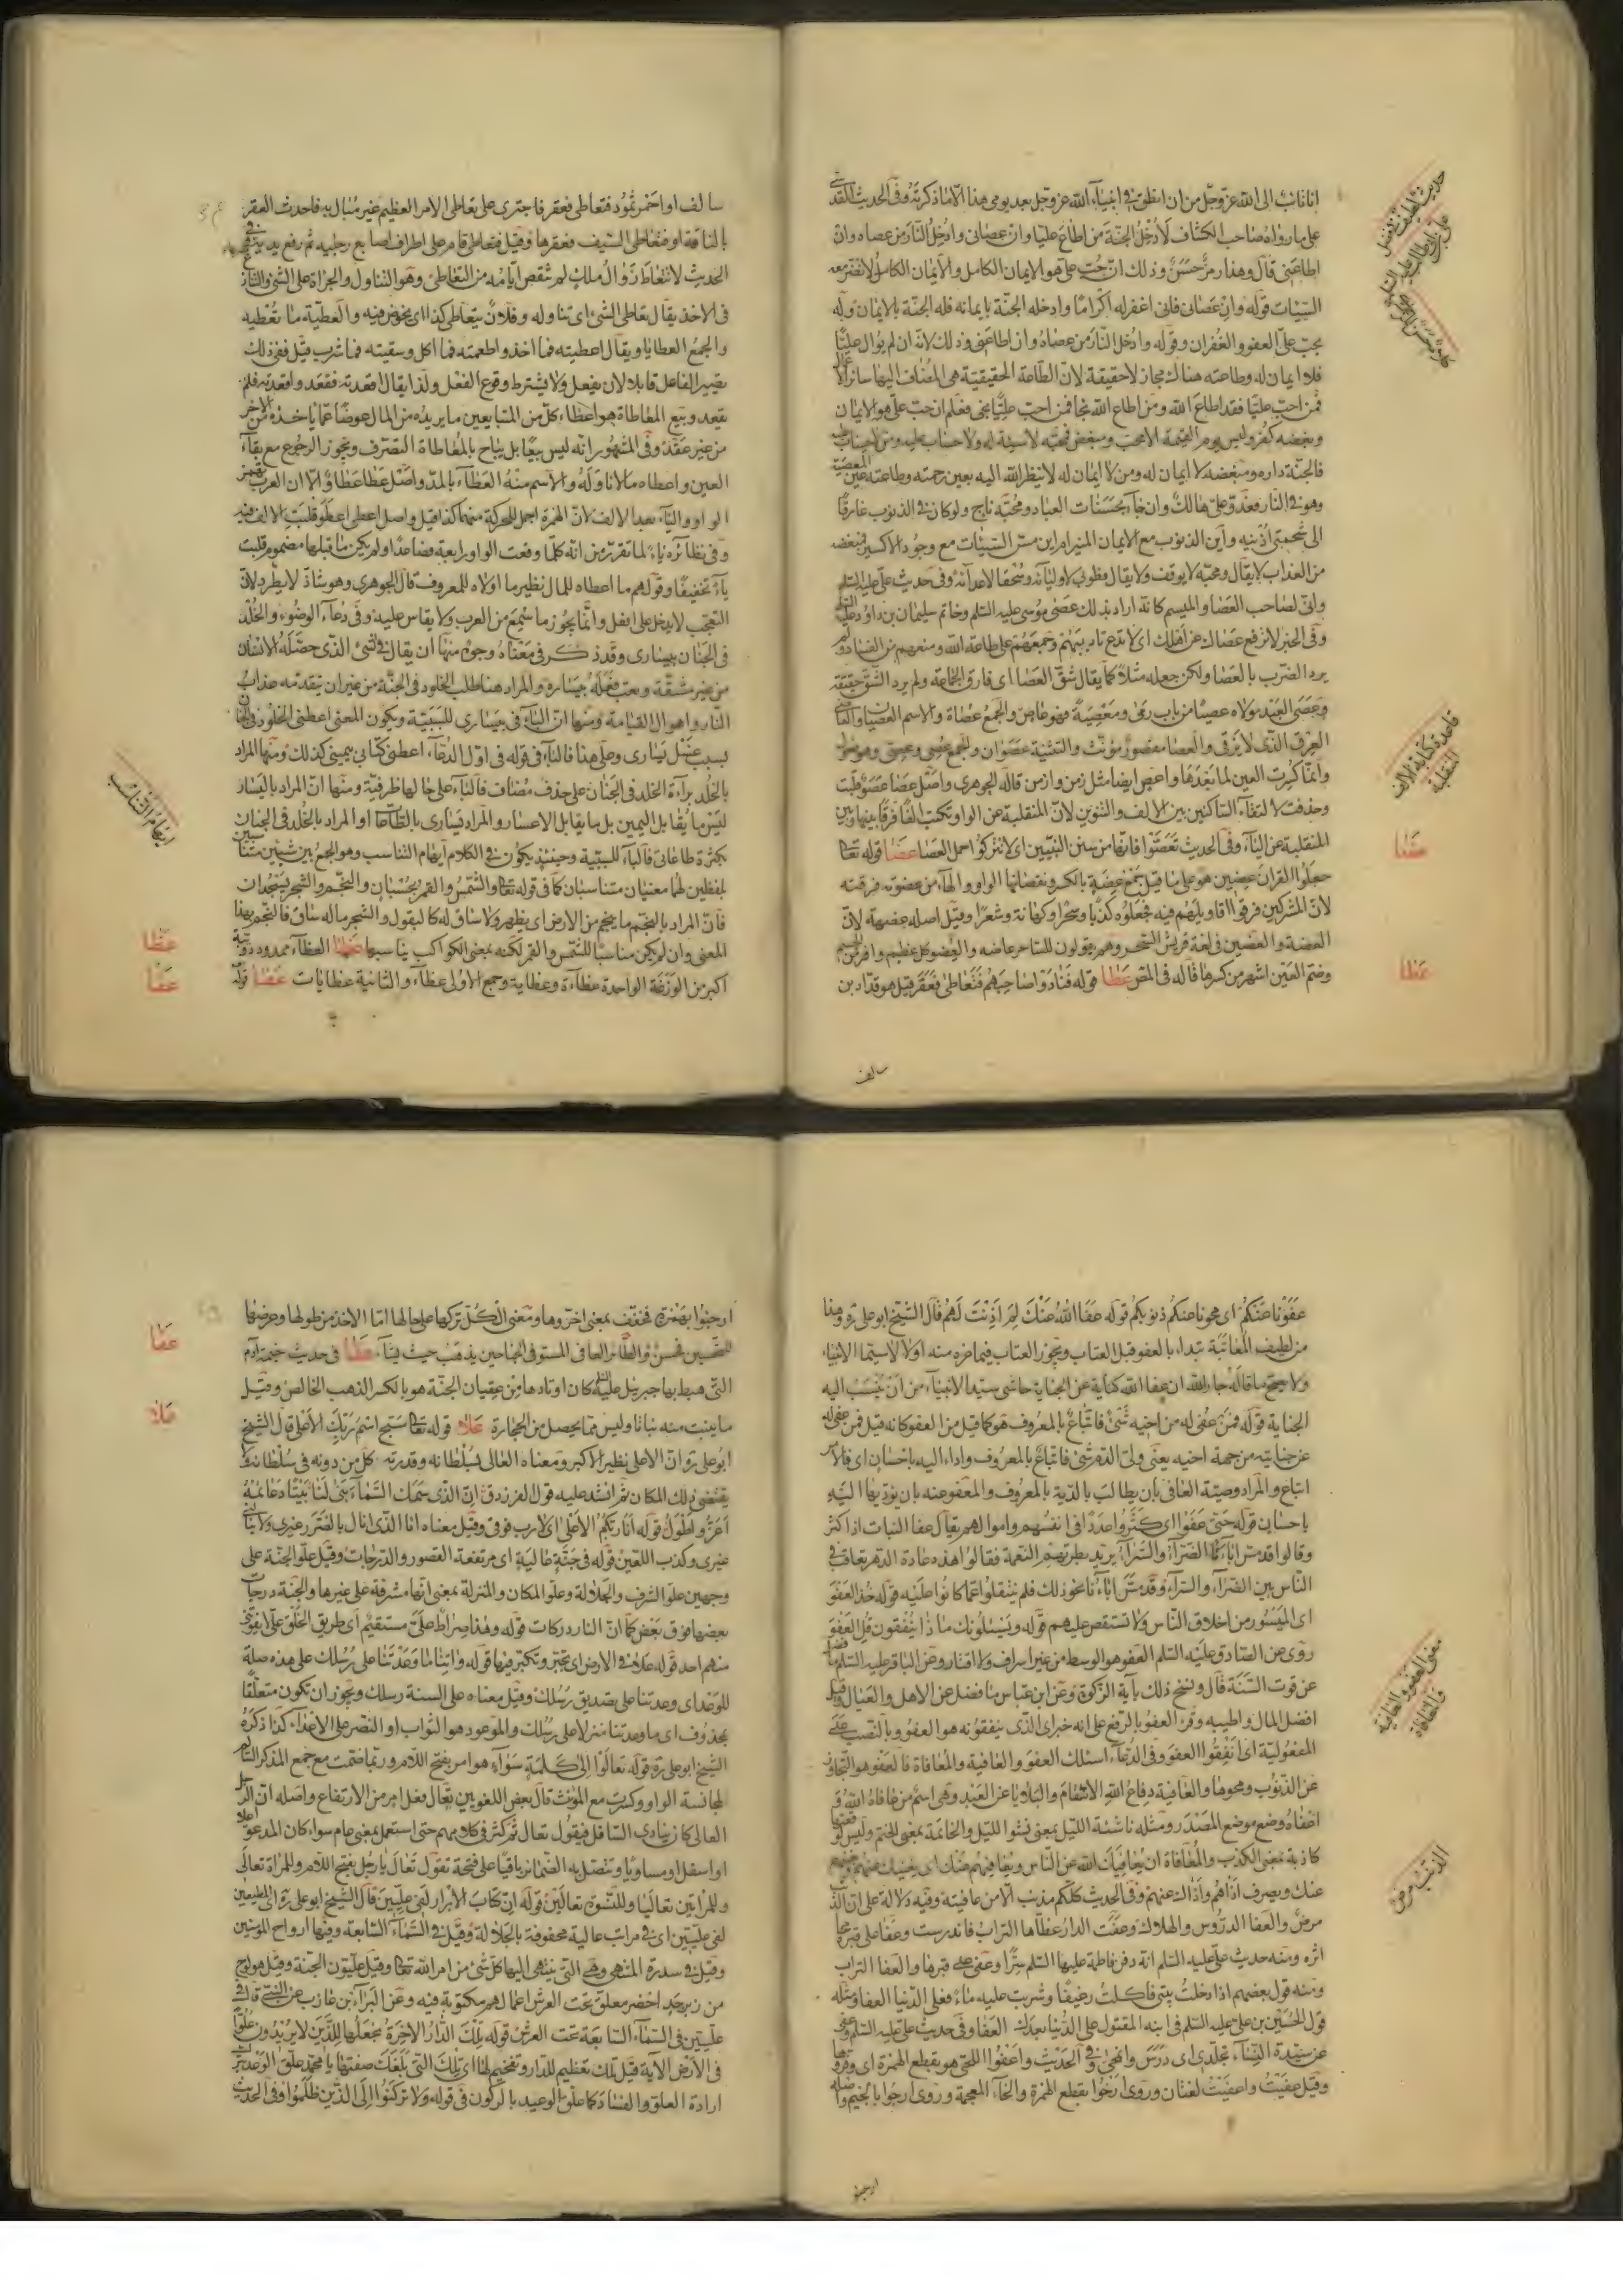 انا تائب الى الله عز وجل من ان انطق في انبياء الله عز وجل بعد يومي هذا الا ما ذكرته وفي الحديث القدسي
على ما رواه صاحب الكشاف لأدخل الجنة من اطاع عليا وان عصاني وادخل النار من عصاه وان
اطاعني قال وهذا رمز حسن وذلك ان حب علي هو الايمان الكامل والايمان الكامل لا تضر معه
السيئات قوله وان عصاني فاني اغفر له اكراما وادخله الجنة بايمانه فله الجنة بالايمان وله
بحب علي العفو والغفران وقوله وادخل النار من عصاه وان اطاعني وذلك لانه ان لم يوال عليا
فلا ايمان له وطاعته هناك مجاز لا حقيقة لان الطاعة الحقيقية هي المضاف اليها سائر الاعمال
فمن احب عليا فقد اطاع الله ومن اطاع الله نجا فمن احب عليا نجى فعلم ان حب علي هو الايمان
وبغضه كفر وليس يوم القيمة الا محب ومبغض فمحبه لا سيئة له ولا حساب عليه ومن لا حساب عليه
فالجنة داره ومبغضه لا ايمان له ومن لا ايمان له لا ينظر الله اليه بعين رحمته وطاعته عين المعصية
وهو في النار فعدو علي هالك وان جاء بحسنات العباد ومحبه ناج ولو كان في الذنوب غارقا
الى شحمتي اذنيه واين الذنوب مع الايمان المنير ام اين مس السيئات مع وجود الاكسير فمبغضه
من العذاب لا يقال ومحبه لا يوقف ولا يقال فطوبى لاوليائه وسحقا لاعدائه وفي حديث علي عليه السلم
واني لصاحب العصا والميسم كانه اراد بذلك عصى موسى عليه السلم وخاتم سليمان بن داود عليه السلم
وفي الخبر لا ترفع عصاك عن اهلك اي لا تدع تاديبهم وجمعهم على طاعة الله ومنعهم من الفساد ولم
يرد الضرب بالعصا ولكن جعله مثلا كما يقال شق العصا اي فارق الجماعة ولم يرد الشق حقيقة
وعصى العبد مولاه عصيا من باب رمى ومعصية فهو عاص والجمع عصاة والاسم العصيان والعاصي
العرق الذي لا يرقى والعصا مقصور مؤنث والتثنية عصوان والجمع عصي وعصي وهو فعول
وانما كسرت العين لما بعدها واعص ايضا مثل زمن وازمن قاله الجوهري واصل عصا عصو قلبت
وحذفت لالتقاء الساكنين بين الالف والتنوين لان المنقلبة عن الواو تكتب الفا فرقا بينها وبين
المنقلبة عن الياء وفي الحديث تعصوا فانها من سنن النبيين اي لا تتركوا احمل العصا عضا قوله تعالى
جعلوا القران عضين هو على ما قيل جمع عضة بالكسر ونقصانها الواو والهاء من عضوته فرقته
لان المشركين فرقوا اقاويلهم فيه فجعلوه كذبا وسحرا وكهانة وشعرا وقيل اصله عضهة لان
العضة والعضين في لغة قريش السحر وهم يقولون للساحر عاضه والعضو كل عظيم وافر من الجسم
وضم العين اشهر من كسرها قاله في المص عطا قوله فنادوا صاحبهم فتعاطى فعقر قيل هو قدار بن
سالف
عضا
عطا
قاعدة كتابة الالف المنقلبة
سالف او احمر ثمود فتعاطى فعقر فاجترى على تعاطي الامر العظيم غير مبال به فاحدث العقر
بالناقة او فتعاطى السيف فعقرها وقيل فتعاطى قام على اطراف اصابع رجليه ثم رفع يديه وفي
الحديث لا تتعاط زوال ملك لم تنقص ايامه من التعاطي وهو التناول والجراة على الشئ والتنازع
في الاخذ يقال تعاطى الشئ اي تناوله وفلان يتعاطى كذا اي يخوض فيه والعطية ما تعطيه
والجمع العطايا ويقال اعطيته فما اخذ واطعمته فما اكل وسقيته فما شرب قيل ففي ذلك
يصير الفاعل قابلا لان يفعل ولا يشترط وقوع الفعل ولذا يقال اقعدته فقعد واقعدته فلم
يقعد وبيع المعاطاة هو اعطاء كل من المتبايعين ما يريده من المال عوضا عما ياخذه من الاخر
من غير عقد وفي المشهور انه ليس بيعا بل يباح بالمعاطاة التصرف ويجوز الرجوع مع بقاء
العين واعطاه مالا ناوله والاسم منه العطاء بالمد واصل عطا عطاو الا ان العرب تهمز
الواو والياء بعد الالف لان الهمزة احمل للحركة منهما كذا قيل واصل اعطى اعطو قلبت الالف فيه
وفي نظائره ياء لما تقرر من انه كلما وقعت الواو رابعة فصاعدا ولم يكن ما قبلها مضموم قلبت
ياء تخفيفا وقولهم ما اعطاه للمال نظير ما اولاه للمعروف قال الجوهري وهو شاذ لا يطرد لان
التعجب لا يدخل على افعل وانما يجوز ما سمع من العرب ولا يقاس عليه وفي دعاء الوضوء والخلد
في الجنان بيساري وقد ذكر في معناه وجوه منها ان يقال في الشئ الذي حصله الانسان
من غير مشقة وتعب فعله بيساره والمراد هنا طلب الخلود في الجنة من غير ان يتقدمه عذاب
النار واهوال القيامة ومنها ان الباء في بيساري للسببية ويكون المعنى اعطني الخلود في الجنان
بسبب غسل يساري وعلى هذا فالباء في قوله في اول الدعاء اعطني كتابي بيميني كذلك ومنها المراد
بالخلد براءة الخلد في الجنان على حذف مضاف فالباء على حالها ظرفية ومنها ان المراد باليسار
ليس ما يقابل اليمين بل ما يقابل الاعسار والمراد يساري بالطاعات او المراد بالخلد في الجنان
بكثرة طاعاتي فالباء للسببية وحينئذ يكون في الكلام ايهام التناسب وهو الجمع بين شيئين متناسبين
بلفظين لهما معنيان متناسبان كما في قوله تعالى والشمس والقمر بحسبان والنجم والشجر يسجدان
فان المراد بالنجم ما ينجم من الارض اي يظهر ولا ساق له كالبقول والشجر ماله ساق فالنجم بهذا
المعنى وان لم يكن مناسبا للشمس والقمر لكنه بمعنى الكواكب يناسبها عظا العظاء ممدود دويبة
اكبر من الوزغة الواحدة عظاءة وعظاية وجمع الاولى عظاء والثانية عظايات عفا قوله
ايهام التناسب
عظا
عفا
عفونا عنكم اي محونا عنكم ذنوبكم قوله عفا الله عنك لم اذنت لهم قال الشيخ ابو علي ره وهذا
من لطيف المعاتبة تبداء بالعفو قبل العتاب ويجوز العتاب فيما غيره منه اولى لا سيما الانبياء
ولا يصح ما قاله جار الله ان عفا الله كناية عن الجناية حاشى سيد الانبياء من ان ينسب اليه
الجناية قوله فمن عفي له من اخيه شئ فاتباع بالمعروف هو كما قيل من العفو كانه قيل فمن عفي له
عن جنايته من جهة اخيه يعني ولي الدم شئ فاتباع بالمعروف واداء اليه باحسان اي فالامر
اتباع والمراد وصية العافي بان يطالب بالدية بالمعروف والمعفو عنه بان يؤديها اليه
باحسان قوله حتى عفوا اي كثروا عددا في انفسهم واموالهم يقال عفا النبات اذا كثر
وقالوا قد مس اباءنا الضراء والسراء يريد بطرتهم النعمة فقالوا هذه عادة الدهر يعاقب في
الناس بين الضراء والسراء وقد مس اباءنا نحو ذلك فلم ينتقلوا عما كانوا عليه قوله خذ العفو
اي الميسور من اخلاق الناس ولا تستقص عليهم قوله ويسئلونك ماذا ينفقون قل العفو
روي عن الصادق عليه السلم العفو هو الوسط من غير اسراف ولا اقتار وعن الباقر عليه السلم ما فضل
عن قوت السنة قال ونسخ ذلك باية الزكوة وعن ابن عباس ما فضل عن الاهل والعيال وقيل
افضل المال واطيبه وقرئ العفو بالرفع على انه خبر اي الذي ينفقونه هو العفو وبالنصب على
المفعولية اي انفقوا العفو وفي الدعاء اسئلك العفو والعافية والمعافاة فالعفو هو التجاوز
عن الذنوب ومحوها والعافية دفاع الله الاسقام والبلايا عن العبد وهي اسم من عافاه الله و
اعفاه وضع موضع المصدر ومثله ناشئة الليل بمعنى نشوا الليل والخاتمة بمعنى الختم وليس لوقعتها
كاذبة بمعنى الكذب والمعافاة ان يعافيك الله عن الناس ويعافيهم عنك اي يغنيك عنهم ويغنيهم
عنك ويصرف اذاهم واذاك عنهم وفي الحديث كلكم مذنب الا من عافيته وفيه دلالة على ان الذنب
مرض والعفا الدروس والهلاك وعفت الدار غطاها التراب فاندرست وعفا على قبره محا
اثره ومنه حديث علي عليه السلم انه دفن فاطمة عليها السلم سرا وعفى على قبرها والعفا التراب
ومنه قول بعضهم اذا دخلت بيتي فاكلت رغيفا وشربت عليه ماء فعلى الدنيا العفا ومثله
قول الحسين بن علي عليه السلم في ابنه المقتول على الدنيا بعدك العفا وفي حديث علي عليه السلم وعفى
عن سيدة النساء تجلدي اي درس وانمحى وفي الحديث واعفوا اللحى هو بقطع الهمزة اي وفروها
وقيل عفيت واعفيت لغتان وروي ارخوا بقطع الهمزة والخاء المعجمة وروي ارجوا بالجيم واصله
ارجئو
معنى العفو والعافية والمعافاة
الذنب مرض
ارجئوا بهمزة فخفف بمعنى اخروها ومعنى الكل تركها على حالها اما الاخذ من طولها وعرضها
للتحسين فحسن والطائر العافي المستوفي الجناحين يذهب حيث يشاء عقا في حديث خيمة آدم
التي هبط بها جبرئيل عليه السلم كان اوتادها من عقيان الجنة هو بالكسر الذهب الخالص وقيل
ما ينبت منه نباتا وليس مما يحصل من الحجارة علا قوله تعالى سبح اسم ربك الاعلى قال الشيخ
ابو علي ره ان الاعلى نظير الاكبر ومعناه العالي بسلطانه وقدرته كل من دونه في سلطانه ولا
يقتضي ذلك المكان ثم انشد عليه قول الفرزدق ان الذي سمك السماء بنى لنا بيتا دعائمه
اعز واطول قوله انا ربكم الاعلى اي لا رب فوقي وقيل معناه انا الذي انال بالضرر غيري ولا ينالني
غيري وكذب اللعين قوله في جنة عالية اي مرتفعة القصور والدرجات وقيل علو الجنة على
وجهين علو الشرف والجلالة وعلو المكان والمنزلة بمعنى انها مشرفة على غيرها والجنة درجات
بعضها فوق بعض كما ان النار دركات قوله وهذا صراط علي مستقيم اي طريق الخلق علي لا يفوتني
منهم احد قوله علا في الارض اي تجبر وتكبر فيها قوله واتنا ما وعدتنا على رسلك على هذه صلة
للوعد اي وعدتنا على تصديق رسلك وقيل معناه على السنة رسلك ويجوز ان تكون متعلقا
بمحذوف اي ما وعدتنا منزلا على رسلك والموعود هو الثواب او النصر على الاعداء كذا ذكره
الشيخ ابو علي ره قوله تعالوا الى كلمة سواء هو امر بفتح اللام وربما ضمت مع جمع المذكر السالم
لمجانسة الواو وكسرت مع المؤنث قال بعض اللغويين تعال فعل امر من الارتفاع واصله ان الرجل
العالي كان ينادي السافل فيقول تعال ثم كثر في كلامهم حتى استعمل بمعنى عام سواء كان المدعو اعلا
او اسفل او مساويا ويتصل به الضمائر باقيا على فتحه تقول تعال يا رجل بفتح اللام وللمراة تعالى
وللمراتين تعاليا وللنسوة تعالين قوله ان كتاب الابرار لفي عليين قال الشيخ ابو علي ره اي المطيعين
لفي عليين اي في مراتب عالية محفوفة بالجلالة وقيل في السماء السابعة وفيها ارواح المؤمنين
وقيل في سدرة المنتهى وهي التي ينتهي اليها كل شئ من امر الله تعالى وقيل عليون الجنة وقيل هو لوح
من زبرجد اخضر معلق تحت العرش اعمالهم مكتوبة فيه وعن البراء بن عازب عن النبي قال في
عليين في السماء السابعة تحت العرش قوله تلك الدار الاخرة نجعلها للذين لا يريدون علوا
في الارض الاية قيل تلك تعظيم للدار وتفخيم لها اي تلك التي بلغك صفتها يا محمد علق الوعد بترك
ارادة العلو والفساد كما علق الوعيد بالركون في قوله ولا تركنوا الى الذين ظلموا وفي الحديث
عقا
علا